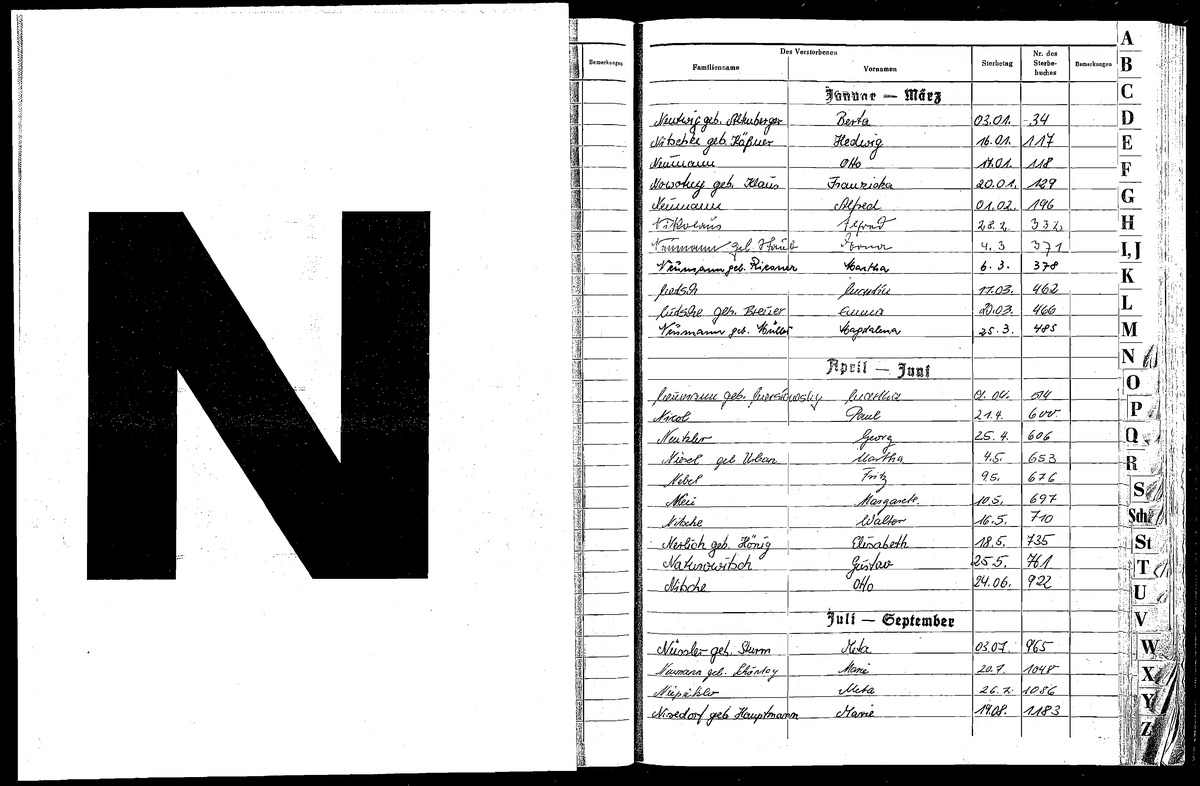 N
Bemerkungen
Des Verstorbenen
Familienname Vornamen Sterbetag Nr. des Sterbe-buches Bemerkungen
Januar — März
Neutwig geb. Berta 03.01. 34
Nitschke geb. Häßner Hedwig 16.01. 117
Neumann Otto 17.01. 118
Nowotny geb. Klaus Franziska 20.01. 129
Neumann Alfred 01.02. 196
Nikolaus Alfred 28.2. 332
Neumann geb. Staub 4.3 371
Neumann geb. Riesner Martha 6.3. 378
11.03. 462
Nitsche geb. Breuer Emma 20.03. 466
Neumann geb. Müller Magdalena 25.3. 485
April — Juni
Neumann geb. Martha
Nicol Paul 21.4. 600
Neutzler Georg 25.4. 606
geb Urban Martha 4.5. 653
Nebel Fritz 9.5. 676
Margarete 10.5. 697
Nitsche Walter 16.5. 710
Nerlich geb. König Elisabeth 18.5. 735
Naturowitsch Gustav 25.5. 761
Nitsche Otto 24.06. 922
Juli — September
Nüssler geb. Sturm 03.07. 965
Neumann geb. Marie 20.7. 1048
Meta 26.7. 1086
Niedorf geb Hauptmann Marie 19.08. 1183
A
B
C
D
E
F
G
H
I, J
K
L
M
N
O
P
Q
R
S
Sch
St
T
U
V
W
X
Y
Z